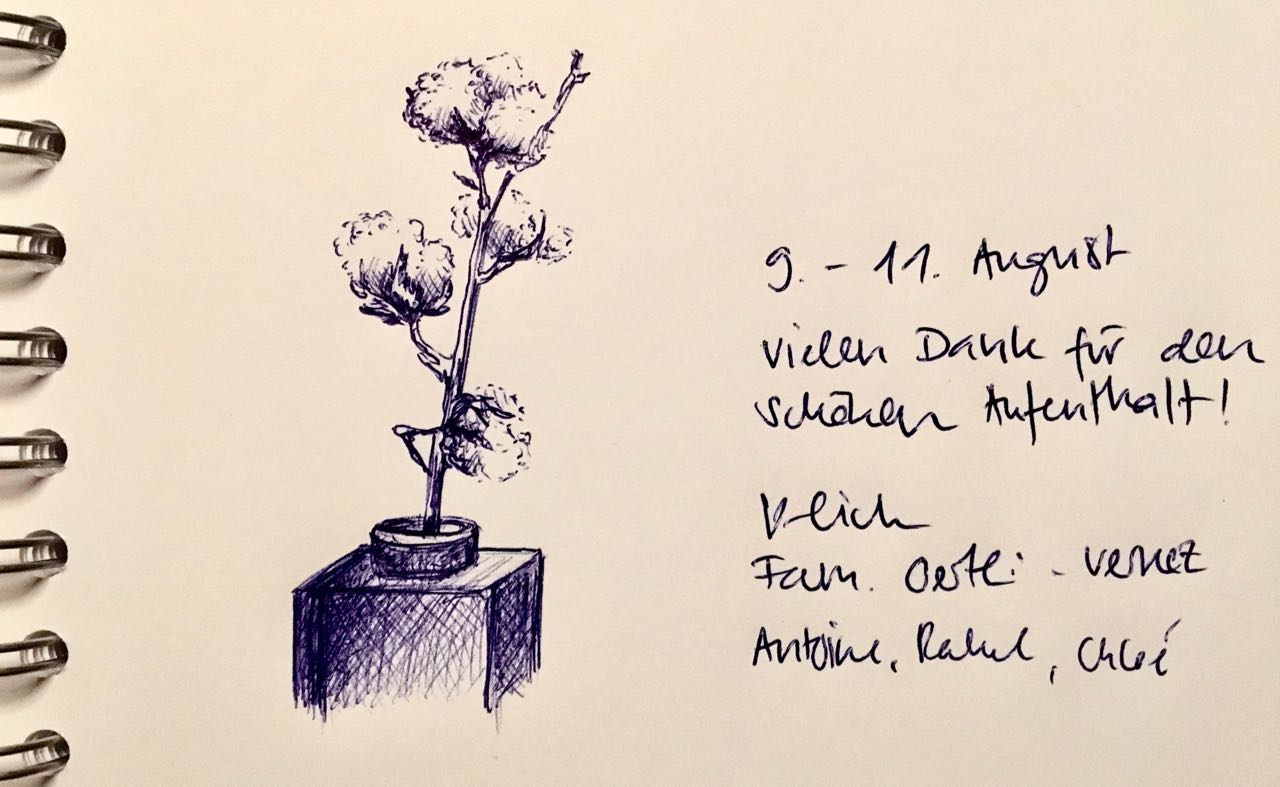 9. - 11. August
Vielen Dank für den
schönen Aufenthalt!
Fam.
Antoine, Rahel, Chloé